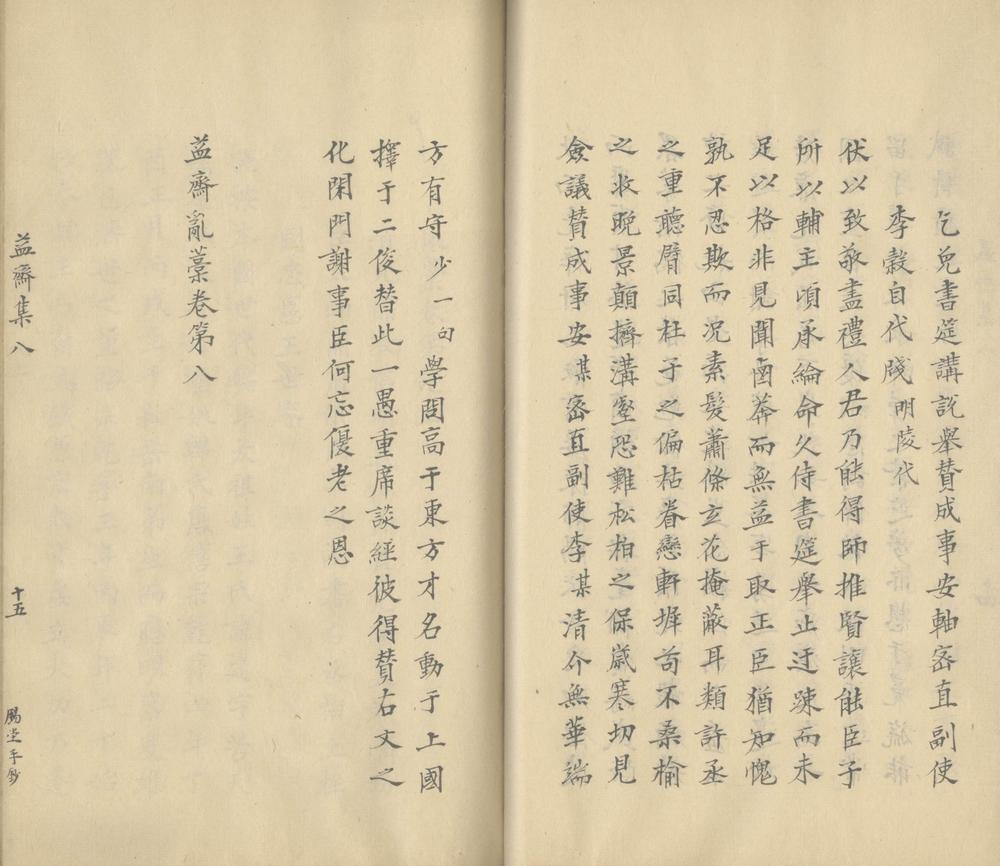 乞免書筵講說舉賛成事安軸密直副使
李穀自代牋 明陵代
伏以致敬盡禮人君乃能得師推賢讓能臣子
所以輔主頃承綸命久侍書筵舉止迂踈而未
足以格非見聞鹵莽而無益于取正臣猶知愧
孰不忍欺而况素髮蕭條玄花掩蔽耳類許丞
之重聽臂同杜子之偏枯眷戀軒墀苟不桑榆
之收晚景顛擠溝壑恐難松柏之保歲寒切見
僉議賛成事安某密直副使李某清介無華端
方有守少一句學問高于東方才名動于上國
擇于二俊替此一愚重席談經彼得賛右文之
化閑門謝事臣何忘優老之恩
益齋亂藁卷第八
益齋集八
十五
鵩堂手鈔